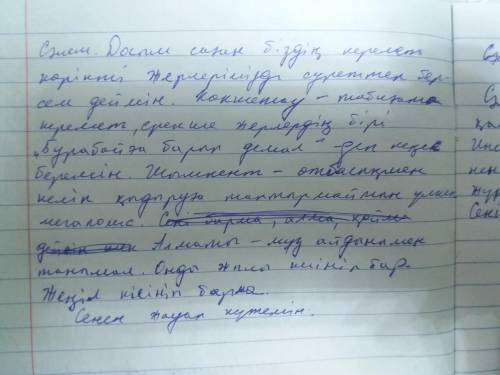 Сәлем. Досым саған біздің керемет
көрікті жерлерімізді суреттеп бер-
сем деймін. Көкшетау – табиғаты
керемет, ерекше жерлердің бірі
"Бурабайға барып демал" деп кеңес
беремін. Шымкент – отбасыңмен
келіп қыдыруға таптырмайтын үлкен
мегаполис. Сені барма, алма, қайт
Алматы – мұз айдынымен
танымал. Онда жылы киініп бар.
Жеңіл киініп барма.
Сенен жауап күтемін.
Сә
Сә
қа
нен
жұр
Сене